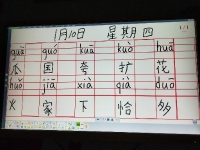 1月10日 星期四
guā guó kuā kuò huā
瓜 国 夸 扩 花
huǒ jiā xià qià duō
火 家 下 恰 多